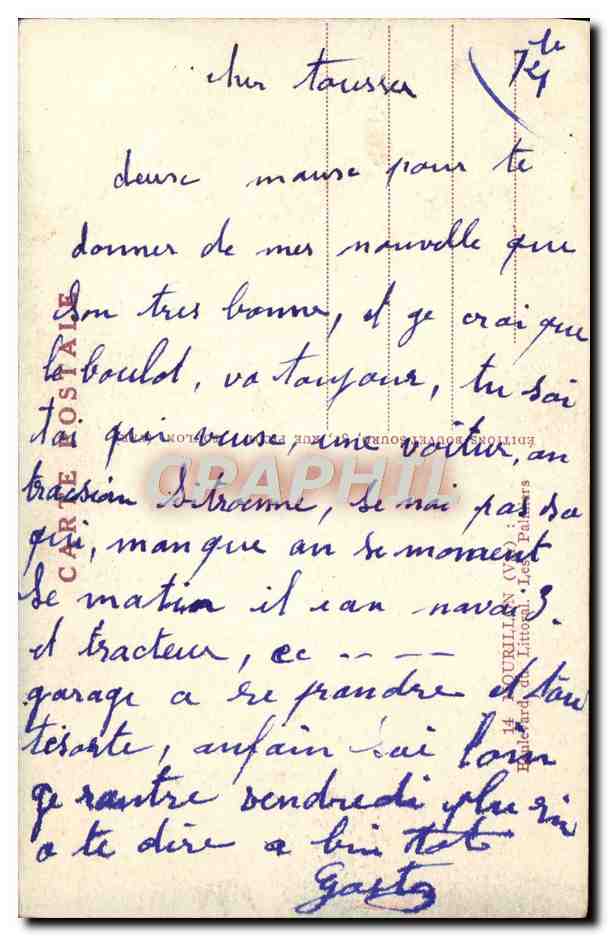 le
7/4
cher tousse
deuse mause pour te
donner de mes nouvelle que
son tres bonne, et ge crai que
le boulot, va toujour, tu sai
toi qui veux, une voitur, an
tracsion sitroenne, se nai pas sa
qui, manque an se moment
se matin il ean navai 3.
et tracteur, ec - - - -
garage a se prandre et tou
tesorte, anfain sai loin
ge rantre vendredi plu rin
a te dire a bin tot
Gaston
CARTE POSTALE
14 BOURILLON (VAR) :
Boulevard du Littoral. Les Palmiers
CPAPHIL